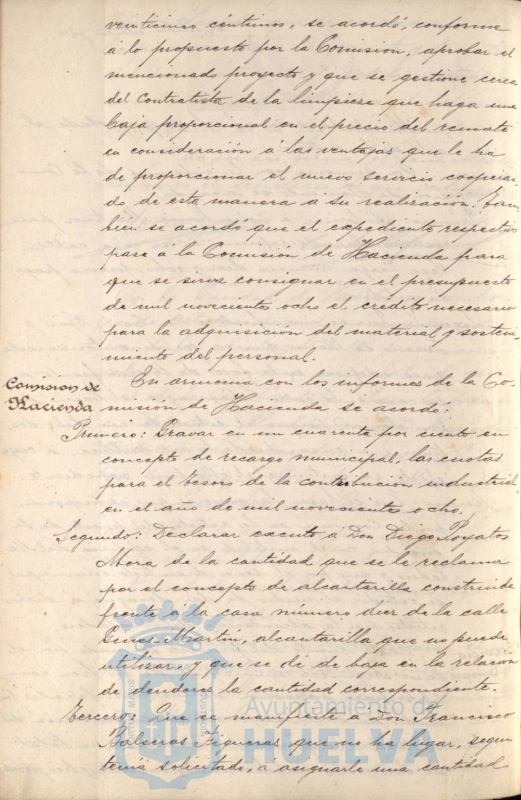 veinticinco céntimos, se acordó, conforme
á lo propuesto por la Comision, aprobar el
mencionado proyecto y que se gestione cerca
del Contratista de la limpieza que haga una
baja proporcional en el precio del remate
en consideración á las ventajas que le ha
de proporcionar el nuevo servicio cooperan-
do de esta manera á su realización. Tam-
bién se acordó que el expediente respectivo
pase á la Comisión de Hacienda para
que se sirva consignar en el presupuesto
de mil novecientos ocho el crédito necesario
para la adquisición del material y sosteni-
miento del personal.
Comision de
Hacienda
En armonia con los informes de la Co-
misión de Hacienda se acordó:
Primero: Gravar en un cuarenta por ciento en
concepto de recargo municipal, las cuotas
para el Tesoro de la contribucion industrial
en el año de mil novecientos ocho.
Segundo: Declarar exento á Don Diego Poyatos
Mora de la cantidad que se le reclama
por el concepto de alcantarilla construida
frente á la casa número diez de la calle
Gines Martin, alcantarilla que no puede
utilizar, y que se dé de baja en la relación
de deudores la cantidad correspondiente.
Tercero: Que se manifieste á Don Francisco
Balseras Figueras que no ha lugar, segun
tenia solicitado, a asignarle una cantidad
Ayuntamiento de
HUELVA